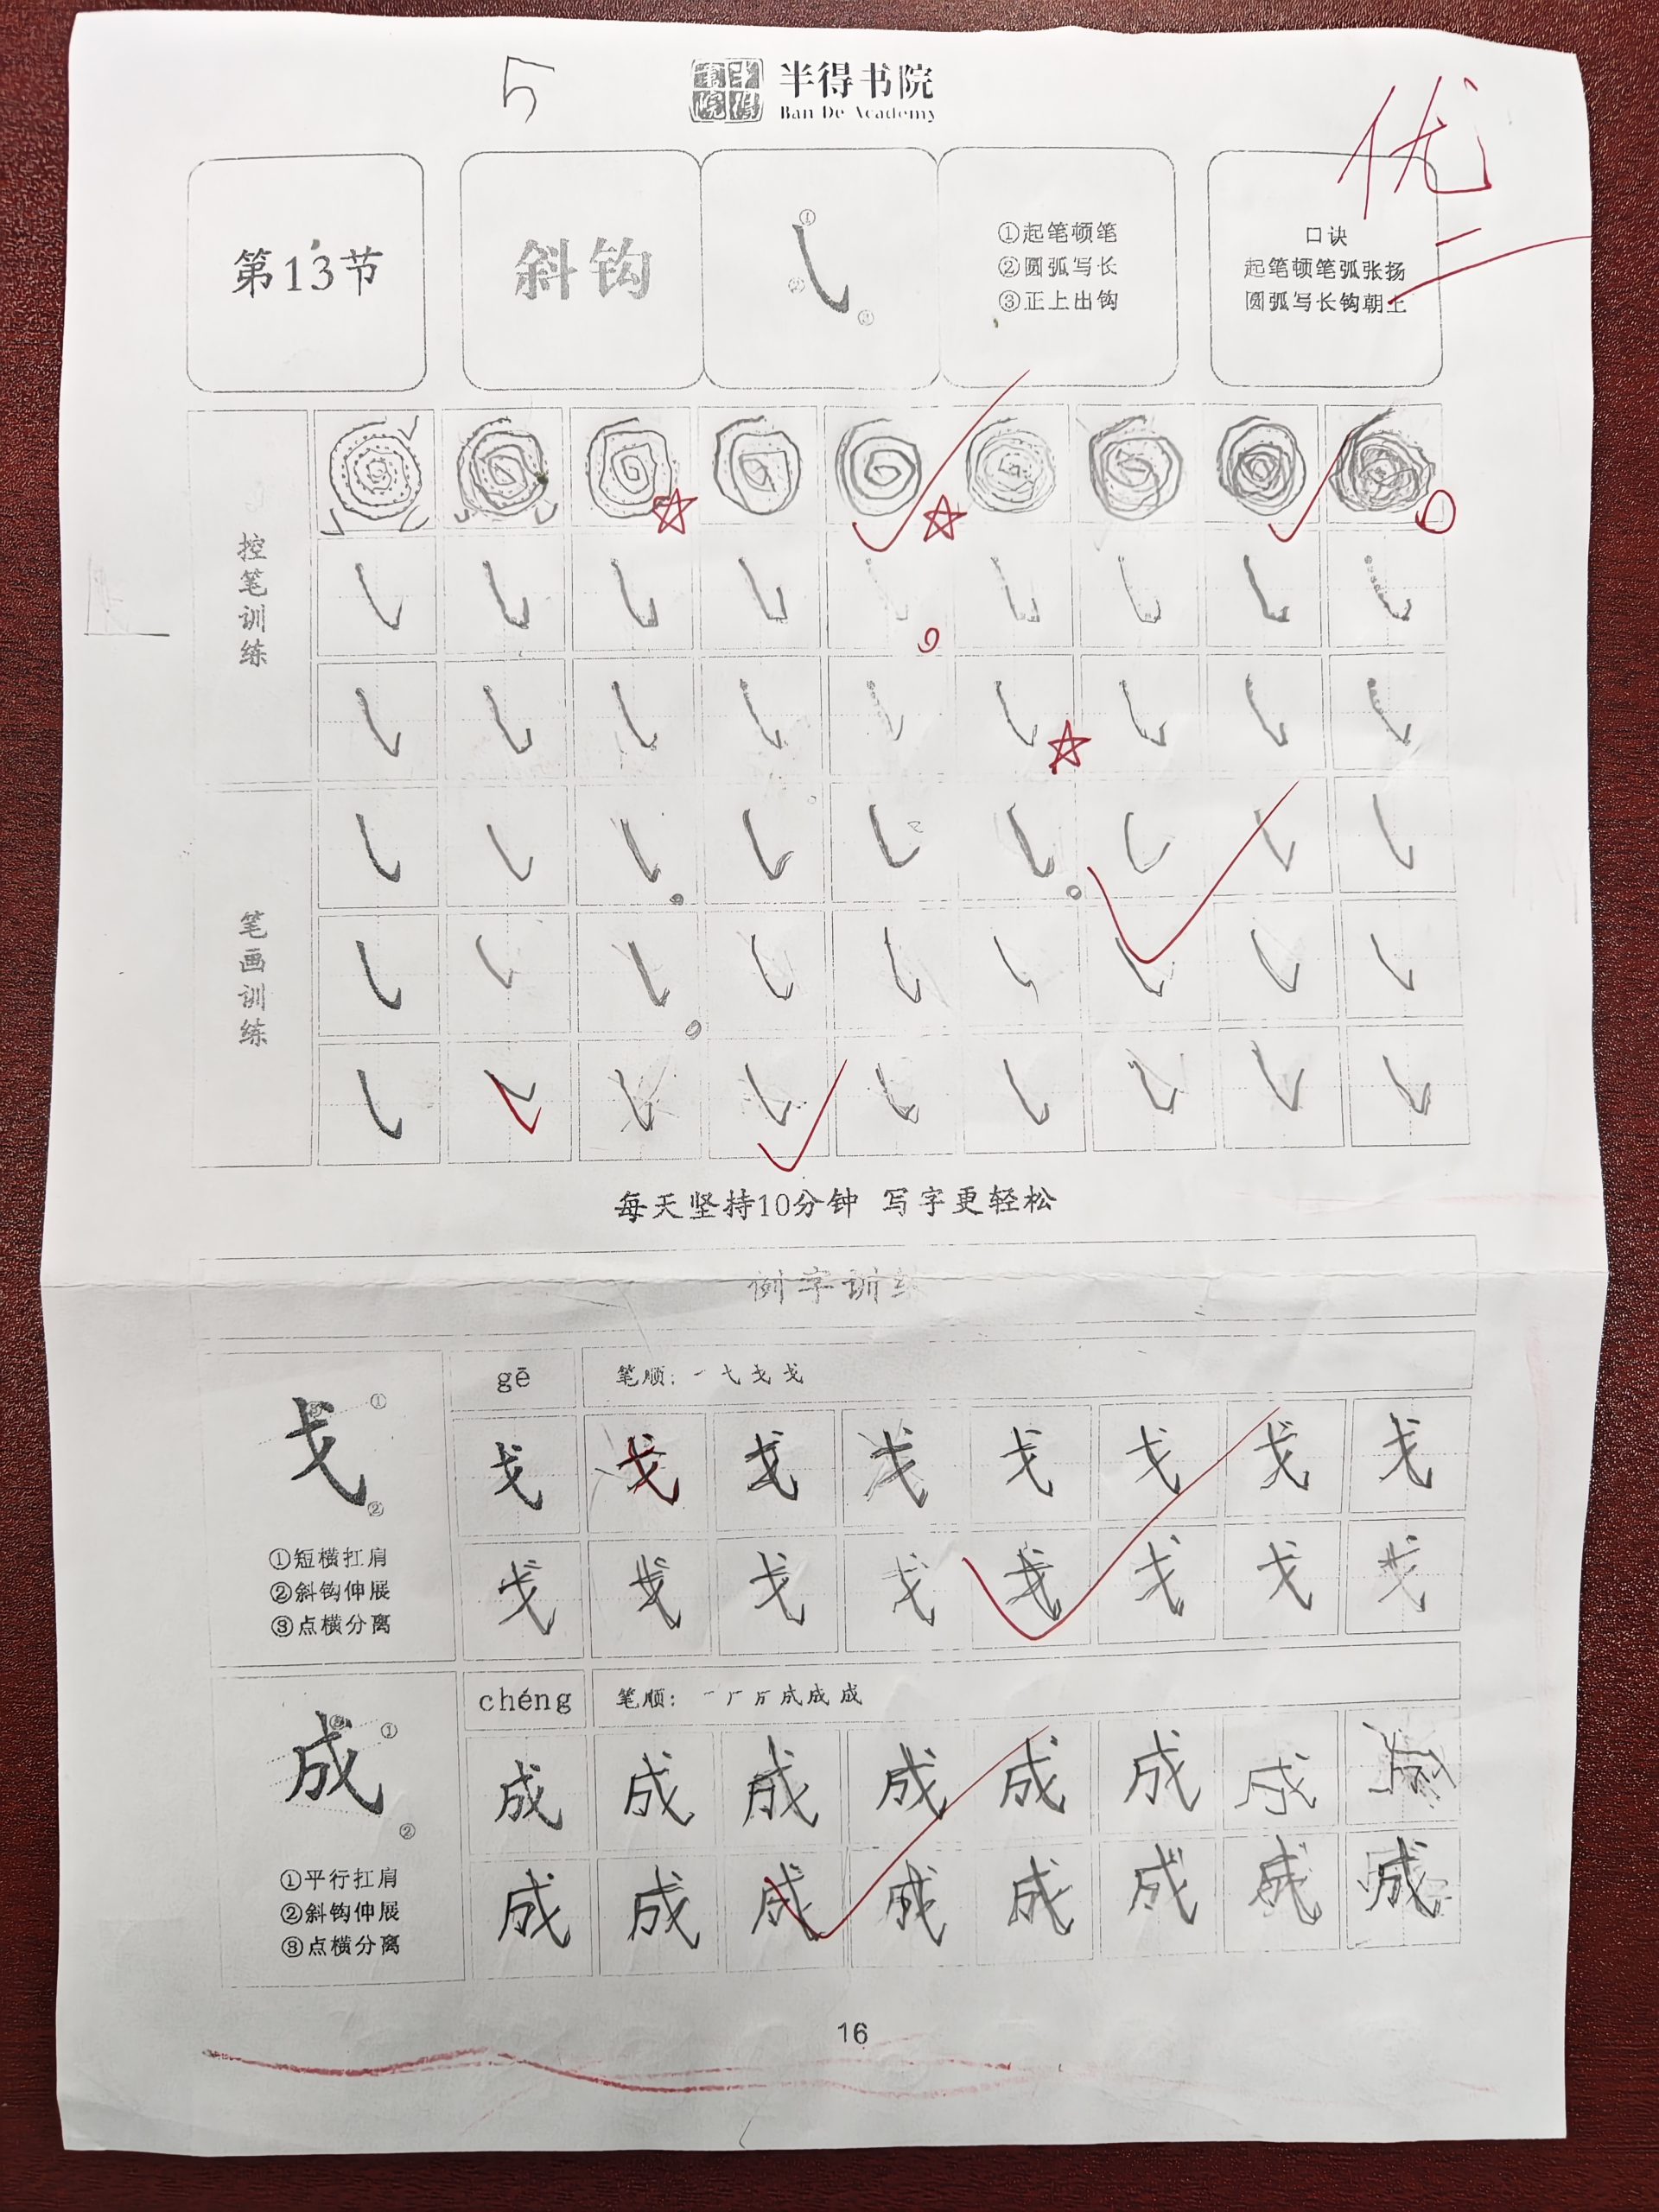 5
半得书院
Ban De Academy
优
第13节
斜钩
①
②
③
①起笔顿笔
②圆弧写长
③正上出钩
口诀
起笔顿笔弧张扬
圆弧写长钩朝上
控笔训练
笔画训练
每天坚持10分钟 写字更轻松
例字训练
戈
①
②
③
①短横扛肩
②斜钩伸展
③点横分离
gē
笔顺：一 弋 戈 戈
戈 戈 戈 戈 戈 戈 戈 戈
戈 戈 戈 戈 戈 戈 戈 戈
成
①
②
③
①平行扛肩
②斜钩伸展
③点横分离
chéng
笔顺：
成 成 成 成 成 成 成
成 成 成 成 成 成 成 成
16